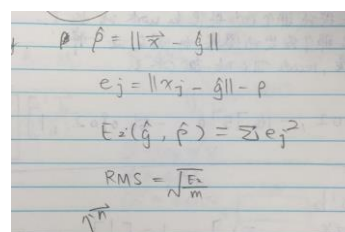 ρ ρ̂ = ||x⃗ - ĝ||
ej = ||xj - ĝ|| - ρ
E2(ĝ, ρ̂) = Σ ej²
RMS = √(E2/m)
n⃗